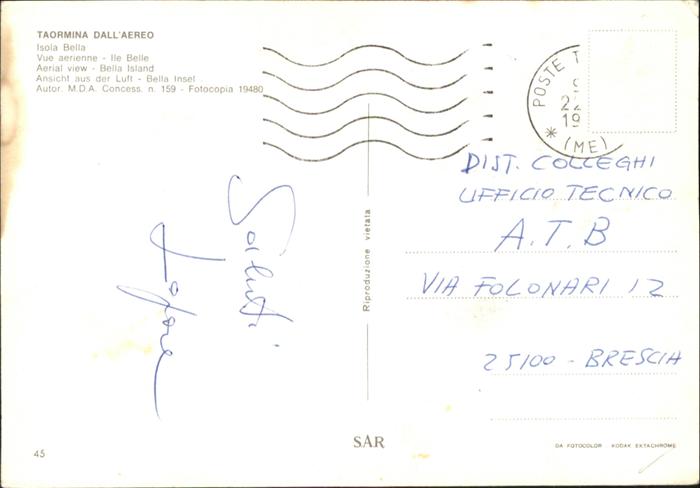 TAORMINA DALL'AEREO
Isola Bella
Vue aerienne - Ile Belle
Aerial view - Bella Island
Ansicht aus der Luft - Bella Insel
Autor. M.D.A. Concess. n. 159 - Fotocopia 19480
POSTE T
22
19
* (ME)
DIST. COLLEGHI
UFFICIO TECNICO
A.T.B
VIA FOLONARI 12
25100 - BRESCIA
Saluti
Riproduzione vietata
45
SAR
DA FOTOCOLOR KODAK EKTACHROME